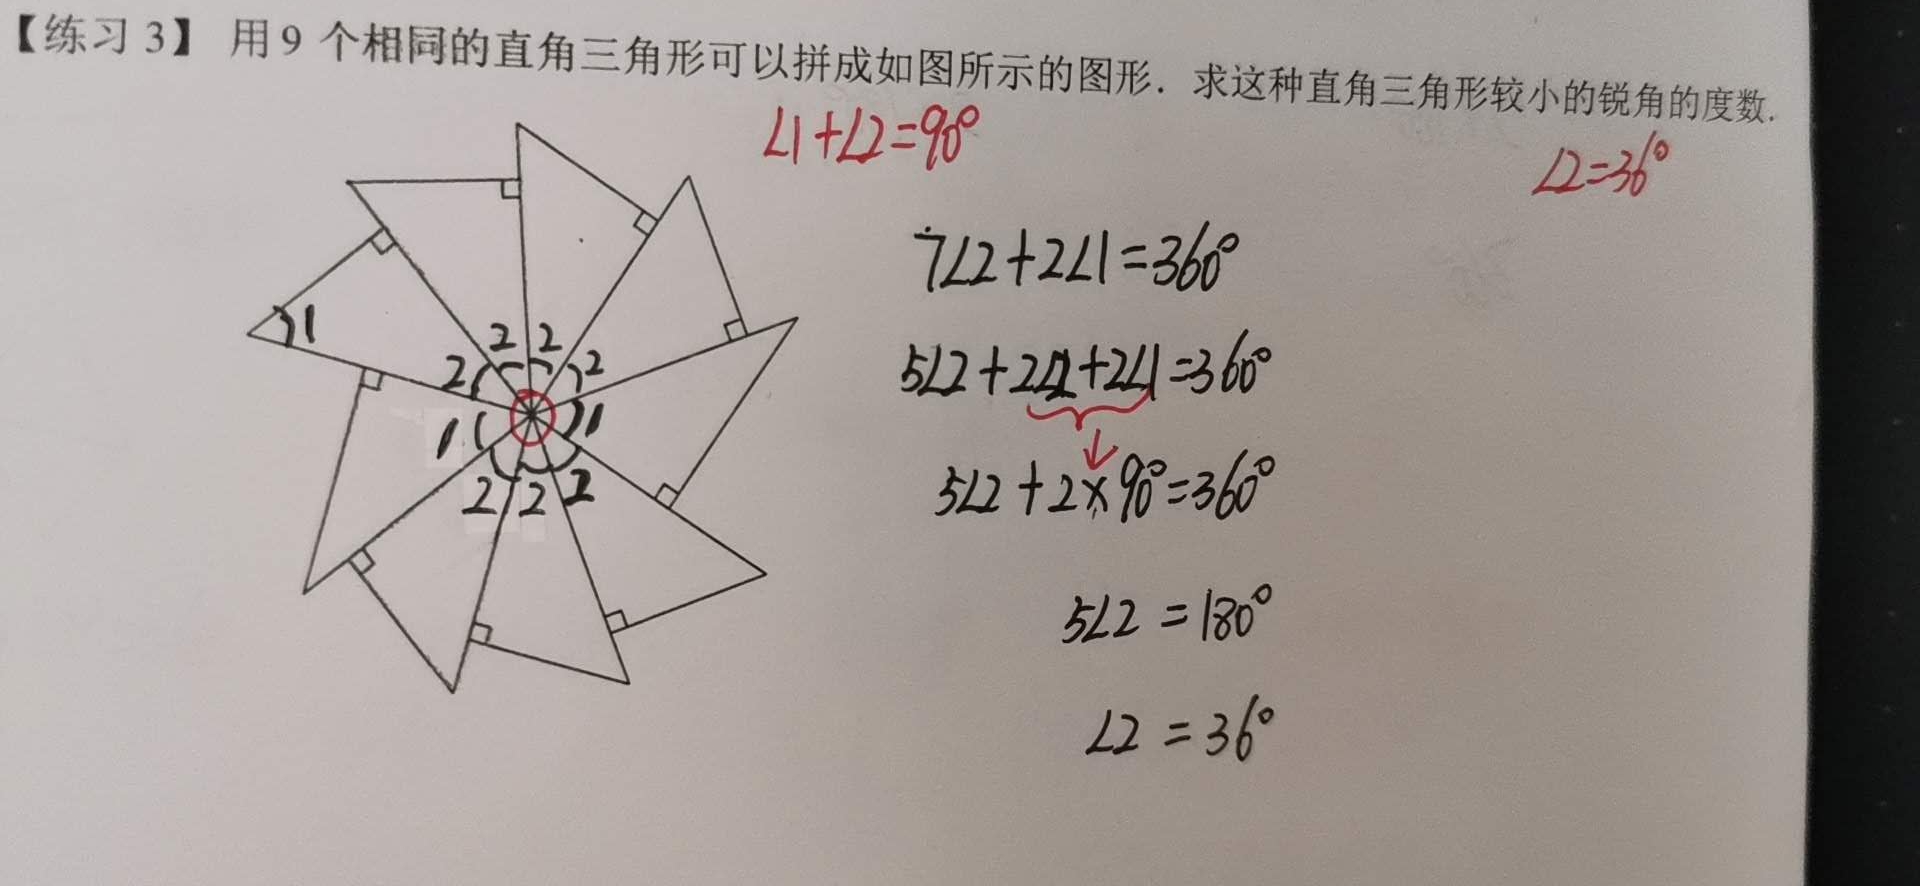 【练习 3】 用 9 个相同的直角三角形可以拼成如图所示的图形. 求这种直角三角形较小的锐角的度数.
∠1+∠2=90°
∠2=36°
7∠2+2∠1=360°
5∠2+2∠2+2∠1=360°
5∠2+2×90°=360°
5∠2=180°
∠2=36°
1
2 2
2 2
1 1
2 2 2